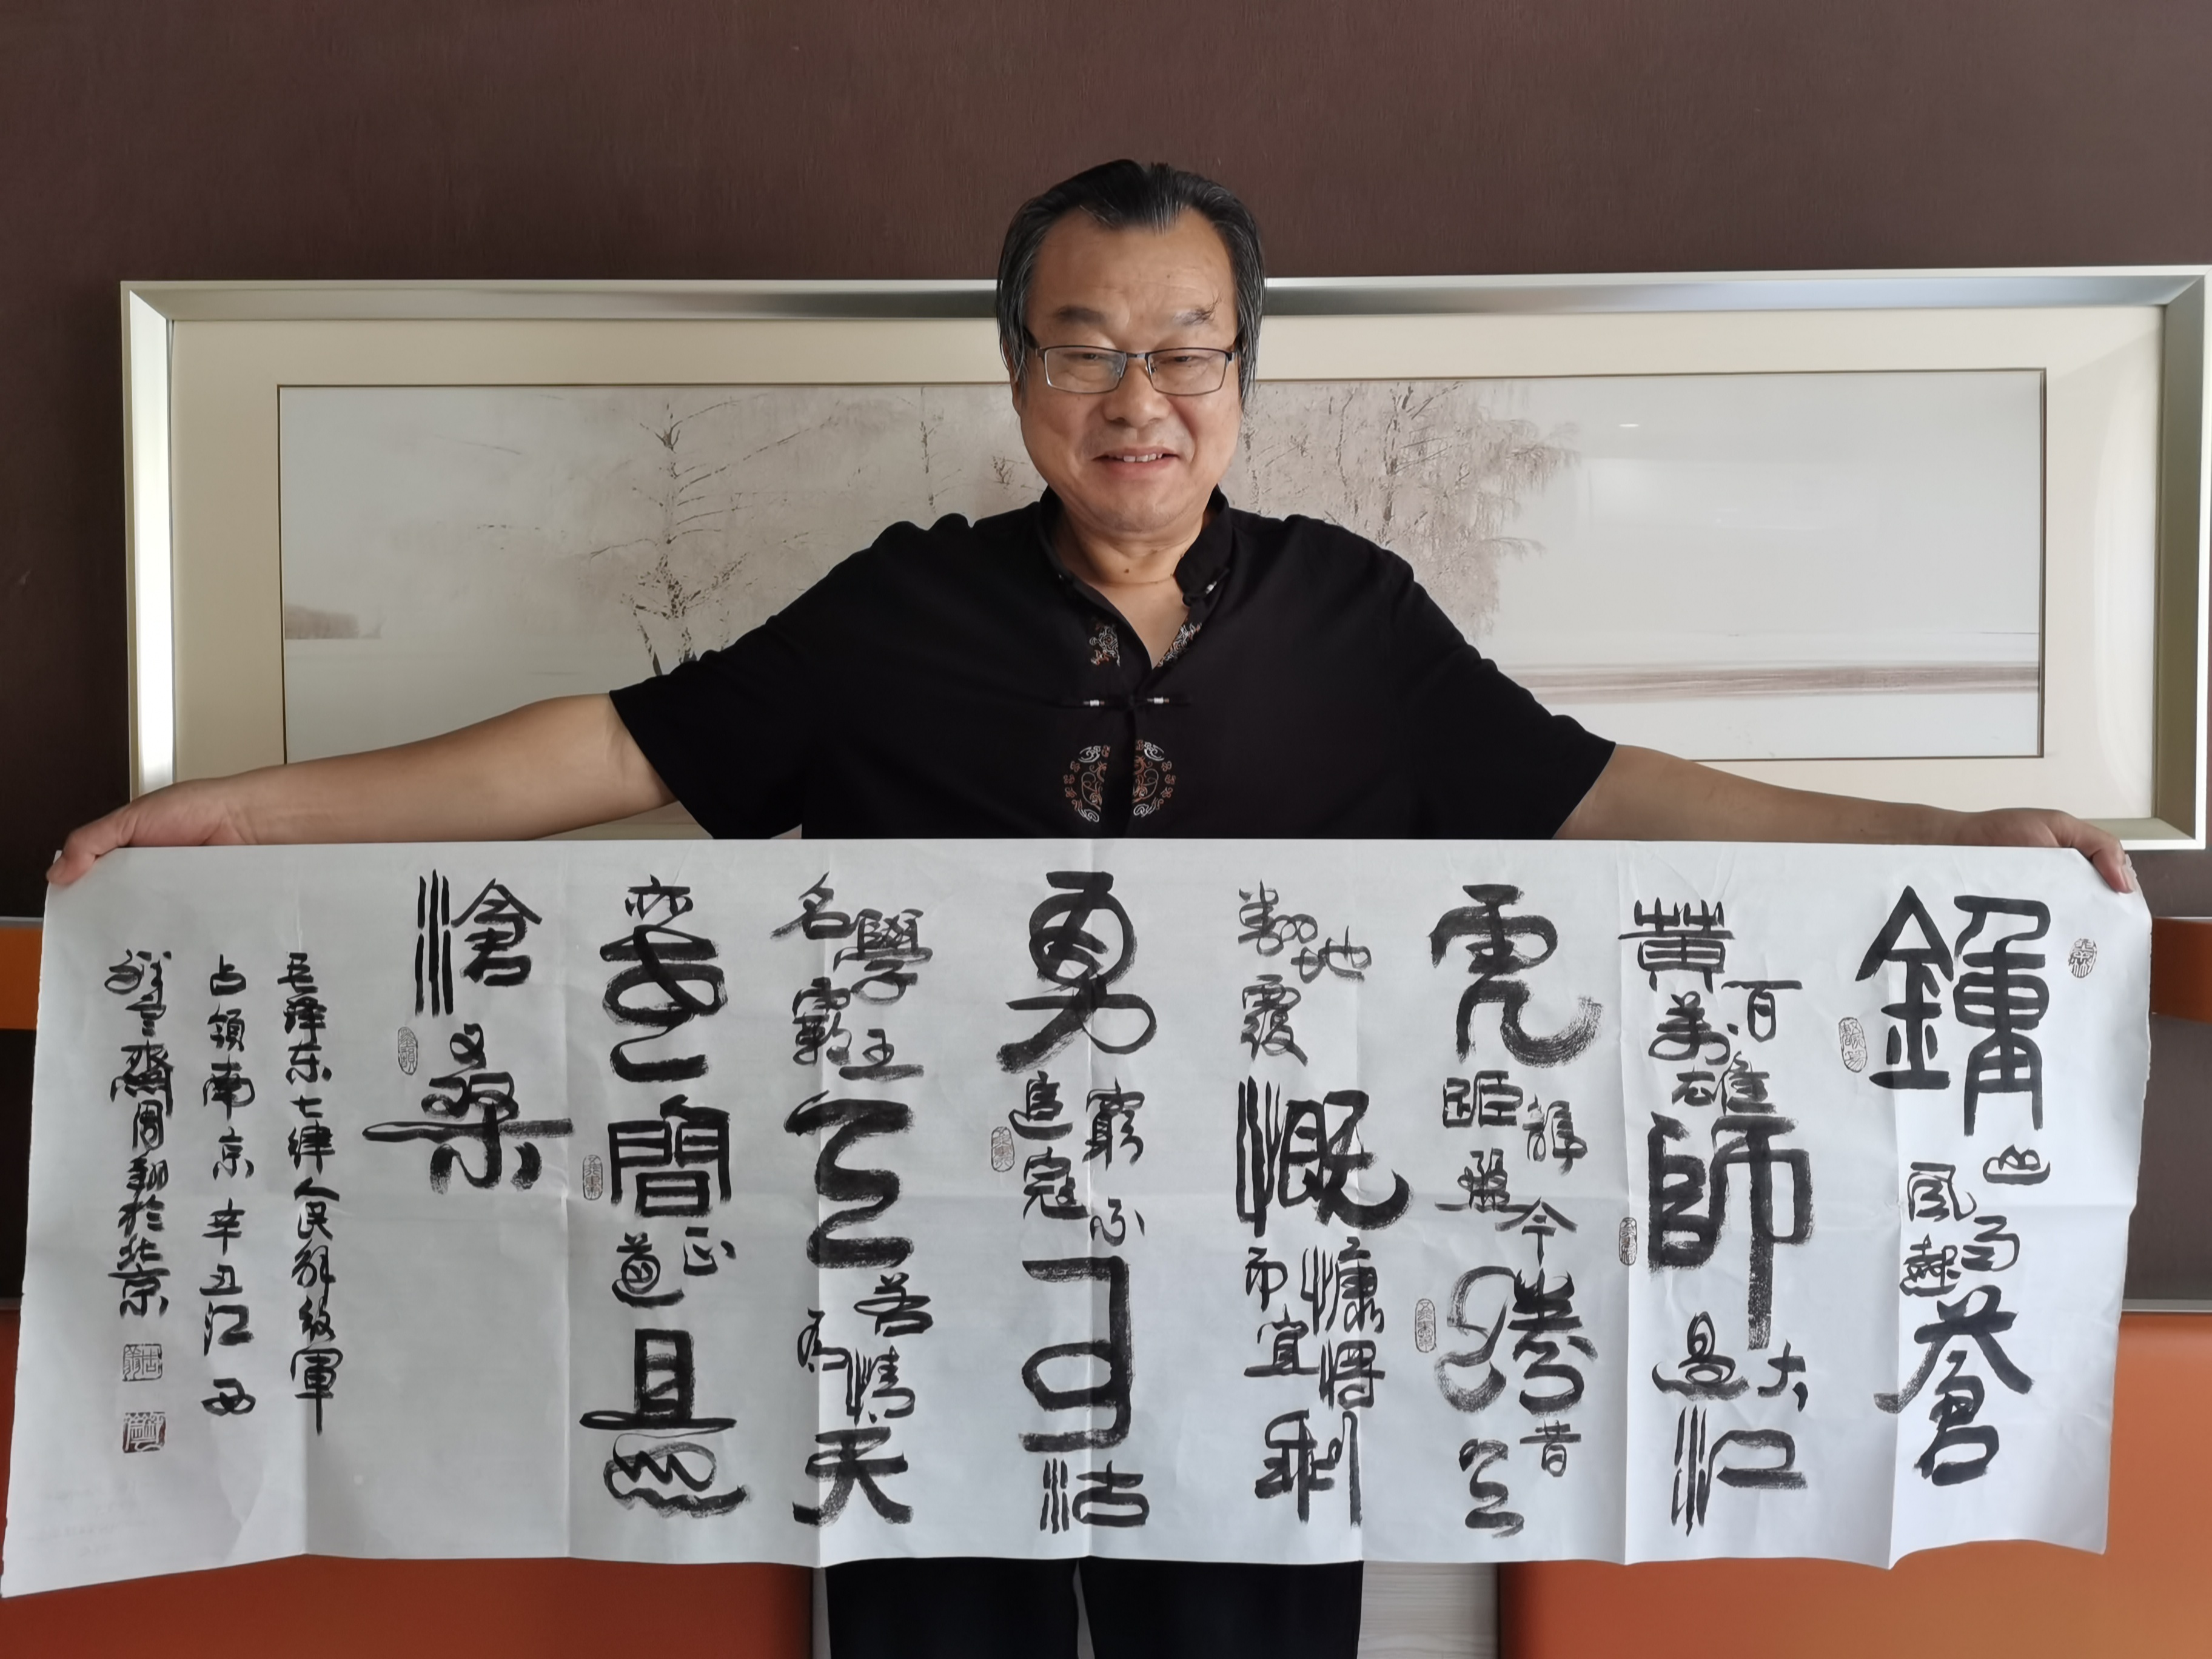 鍾山風雨起蒼
黃百萬雄師過大江
虎踞龍盤今勝昔天
翻地覆慨而慷宜將剩
勇追窮寇不可沽
名學霸王天若有情天
亦老人間正道是
滄桑
毛澤东七律人民解放軍
占領南京辛丑江西
齋周翔於北京